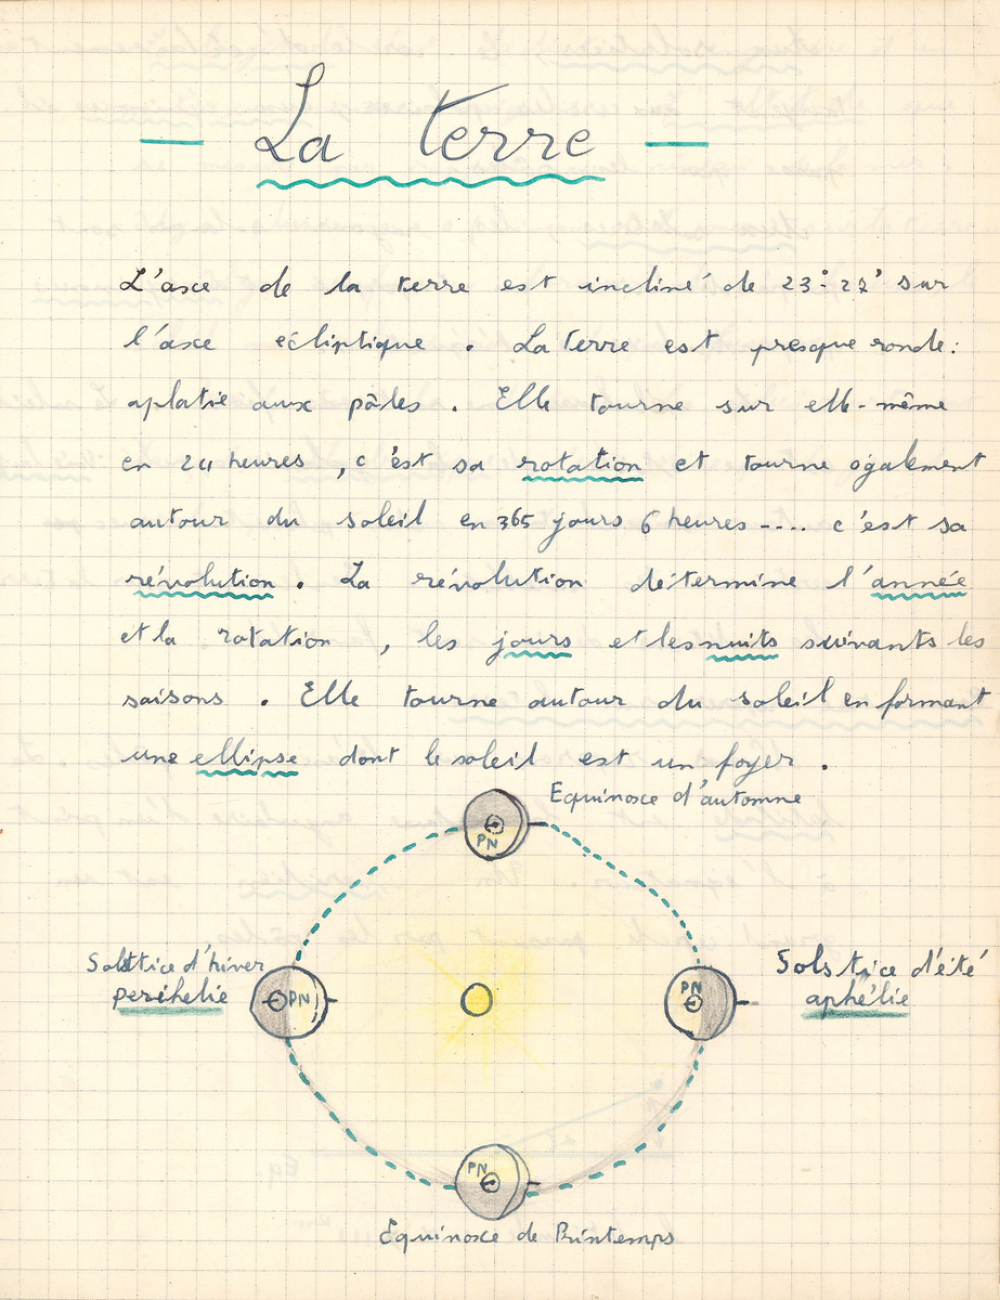 — La terre —
L'axe de la terre est incliné de 23° 27' sur
l'axe écliptique . La terre est presque ronde :
aplatie aux pôles . Elle tourne sur elle-même
en 24 heures , c'est sa rotation et tourne également
autour du soleil en 365 jours 6 heures .... c'est sa
révolution . La révolution détermine l'année
et la rotation , les jours et les nuits suivants les
saisons . Elle tourne autour du soleil en formant
une ellipse dont le soleil est un foyer .
Equinoxe d'automne
PN
Solstice d'hiver
perihelie
PN
Solstice d'été
aphélie
PN
PN
Equinoxe de Printemps